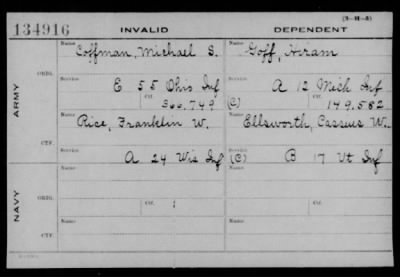 (3-II-5)
134916 INVALID DEPENDENT
Name Coffman, Michael S. Name Goff, Hiram
ORIG.
Service E 55 Ohio Inf Service A 12 Mich Inf
Ctf. 366,749 (C) Ctf. 149,582
ARMY
Name Rice, Franklin W. Name Ellsworth, Cassius W.
CTF.
Service A 24 Wis Inf (C) Service B 17 Vt Inf
Name Name
ORIG.
Ctf. Ctf.
NAVY
Name Name
CTF.